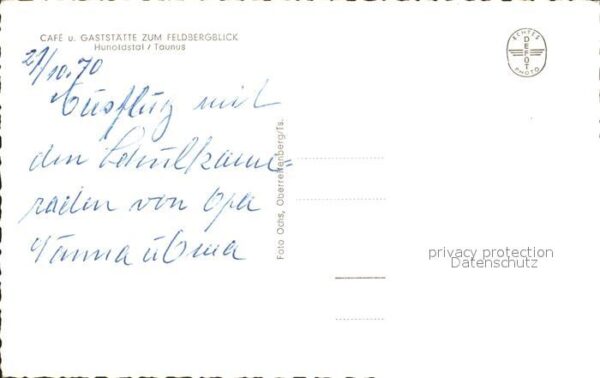 CAFÉ u. GASTSTÄTTE ZUM FELDBERGBLICK
Hunoldstal / Taunus
ECHTES
DEFOT
PHOTO
21/10.70
Ausflug mit
den Schulkame=
raden von Opa
Hanna u Oma
Foto Ochs, Oberreifenberg/Ts.
privacy protection
Datenschutz